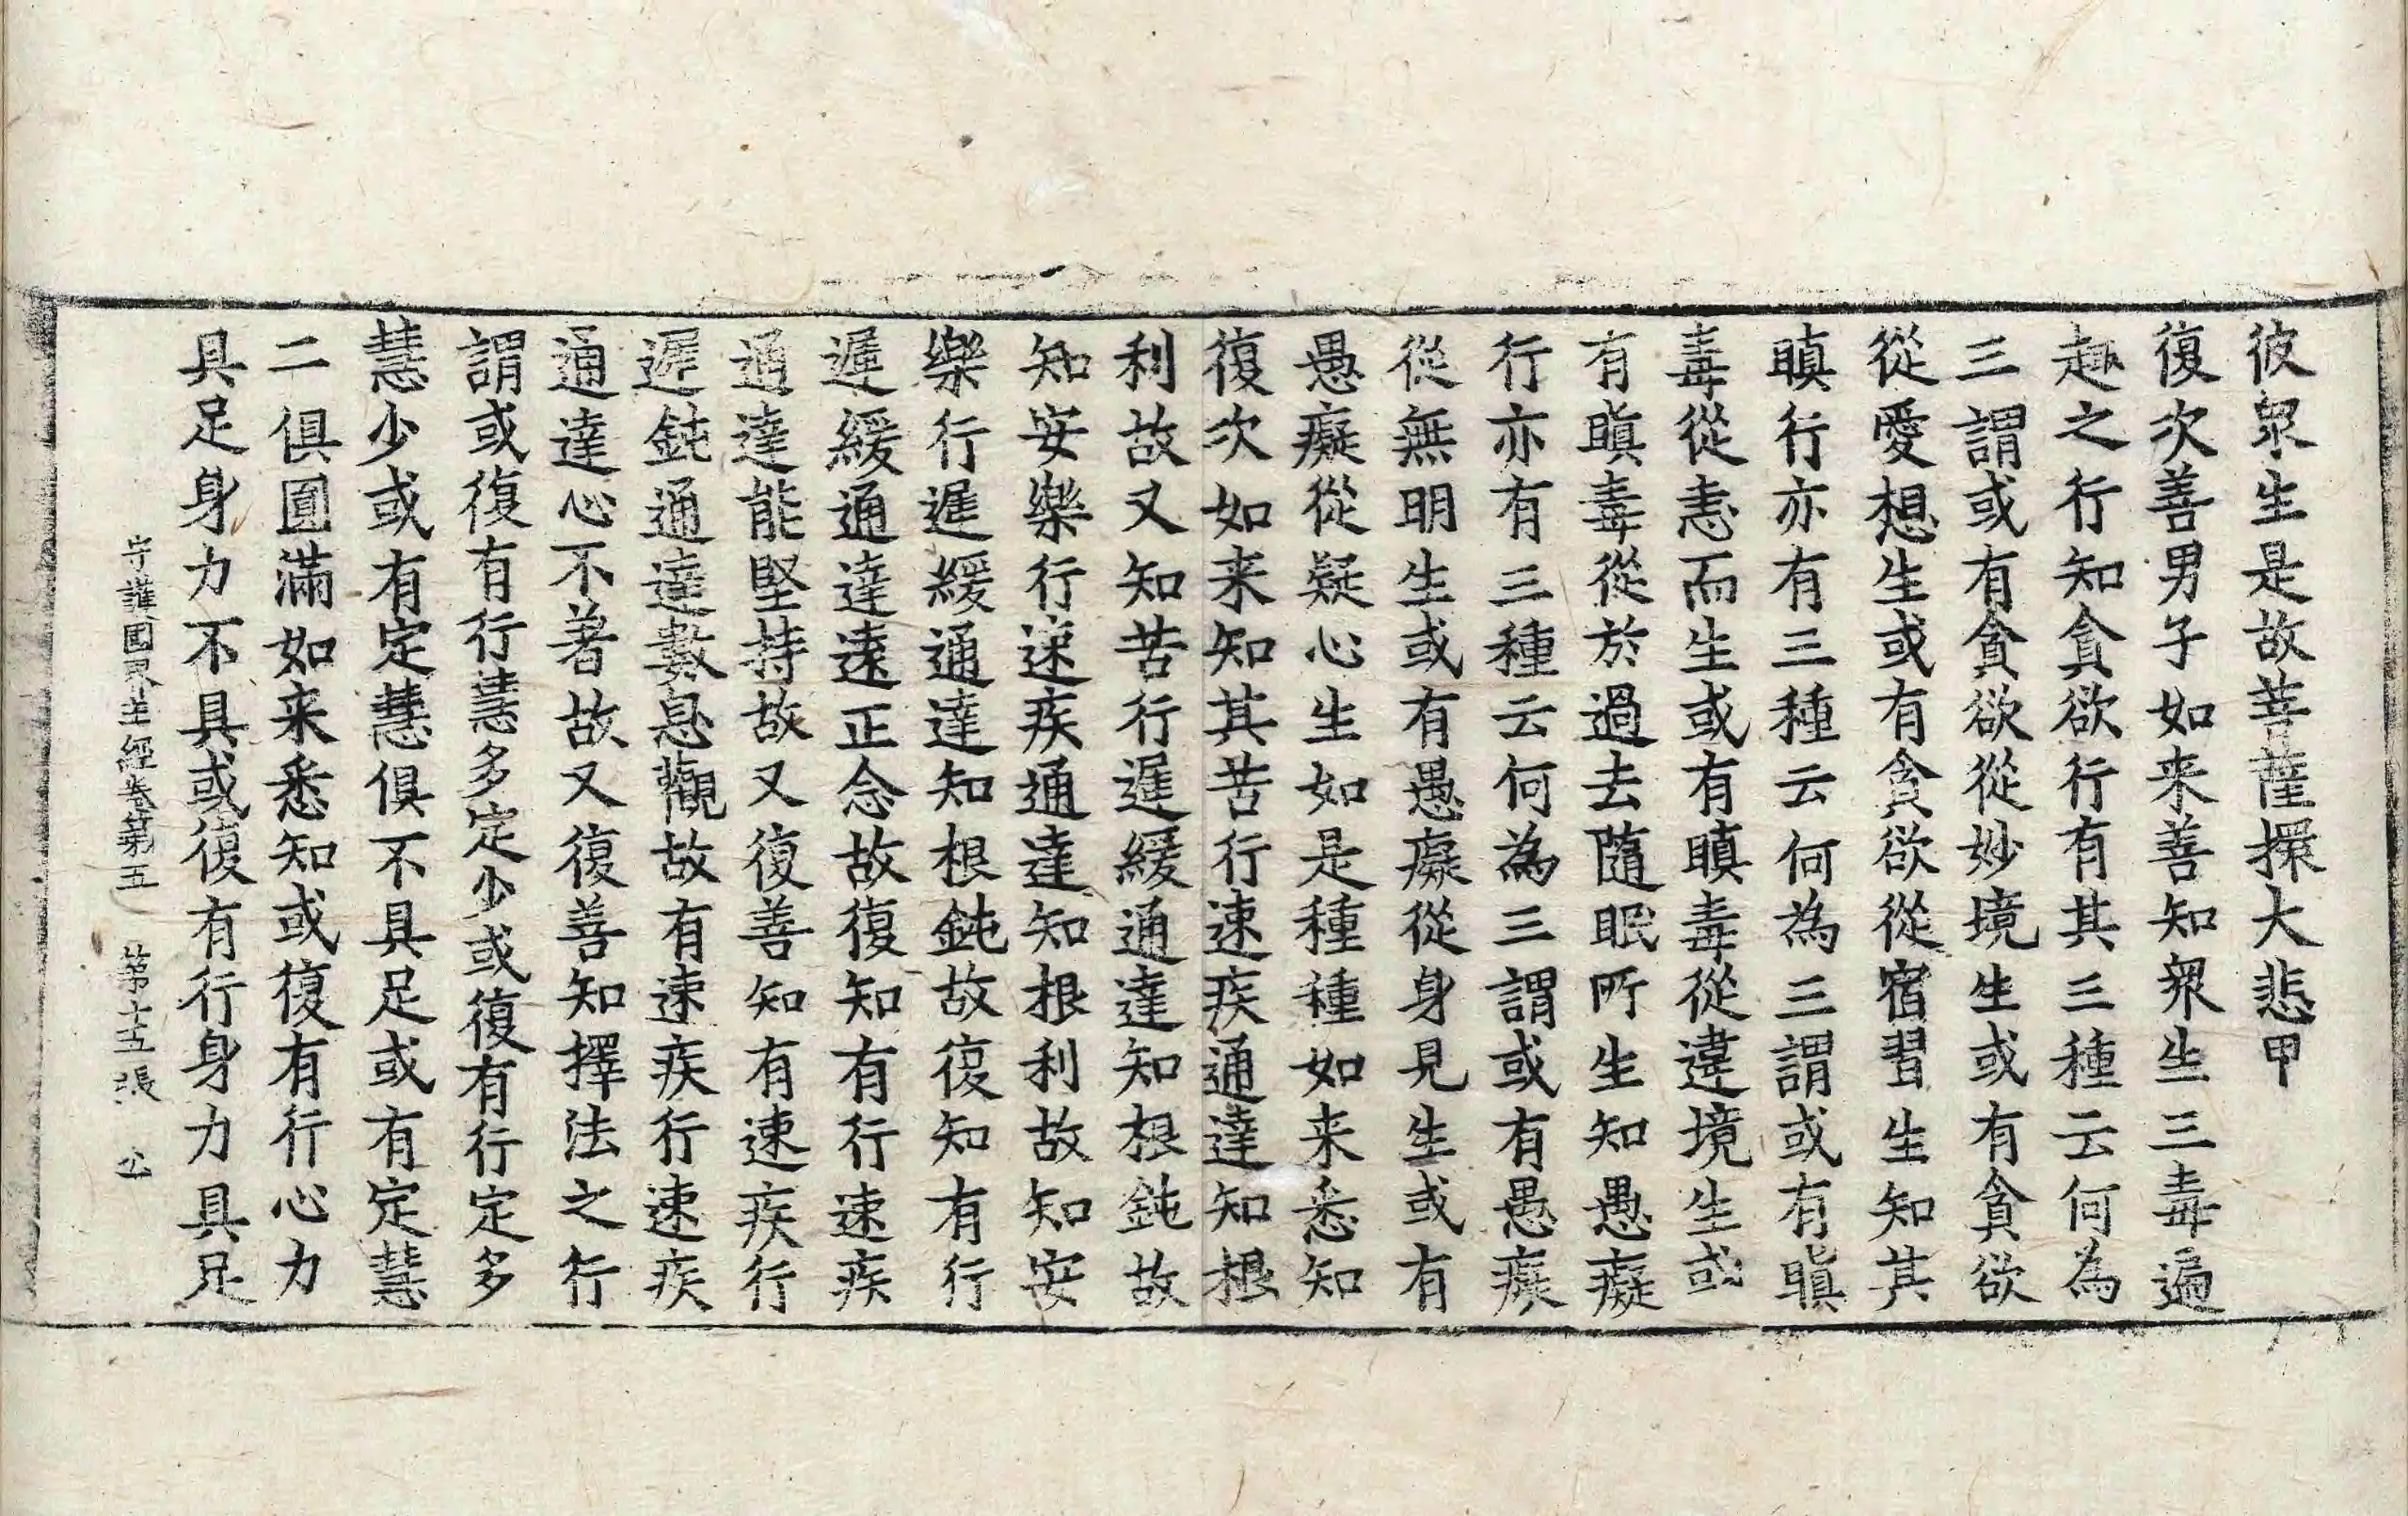 彼衆生是故菩薩擐大悲甲
復次善男子如来善知衆生三毒遍
趣之行知貪欲行有其三種云何為
三謂或有貪欲從妙境生或有貪欲
從愛想生或有貪欲從宿習生知其
瞋行亦有三種云何為三謂或有瞋
毒從恚而生或有瞋毒從違境生或
有瞋毒從於過去隨眠所生知愚癡
行亦有三種云何為三謂或有愚癡
從無明生或有愚癡從身見生或有
愚癡從疑心生如是種種如来悉知
復次如来知其苦行速疾通達知根
利故又知苦行遲緩通達知根鈍故
知安樂行速疾通達知根利故知安
樂行遲緩通達知根鈍故復知有行
遲緩通達遠正念故復知有行速疾
通達能堅持故又復善知有速疾行
遲鈍通達數息觀故有速疾行速疾
通達心不著故又復善知擇法之行
謂或復有行慧多定少或復有行定多
慧少或有定慧俱不具足或有定慧
二俱圓滿如来悉知或復有行心力
具足身力不具或復有行身力具足
守護國界主經卷第五 第十五張 公